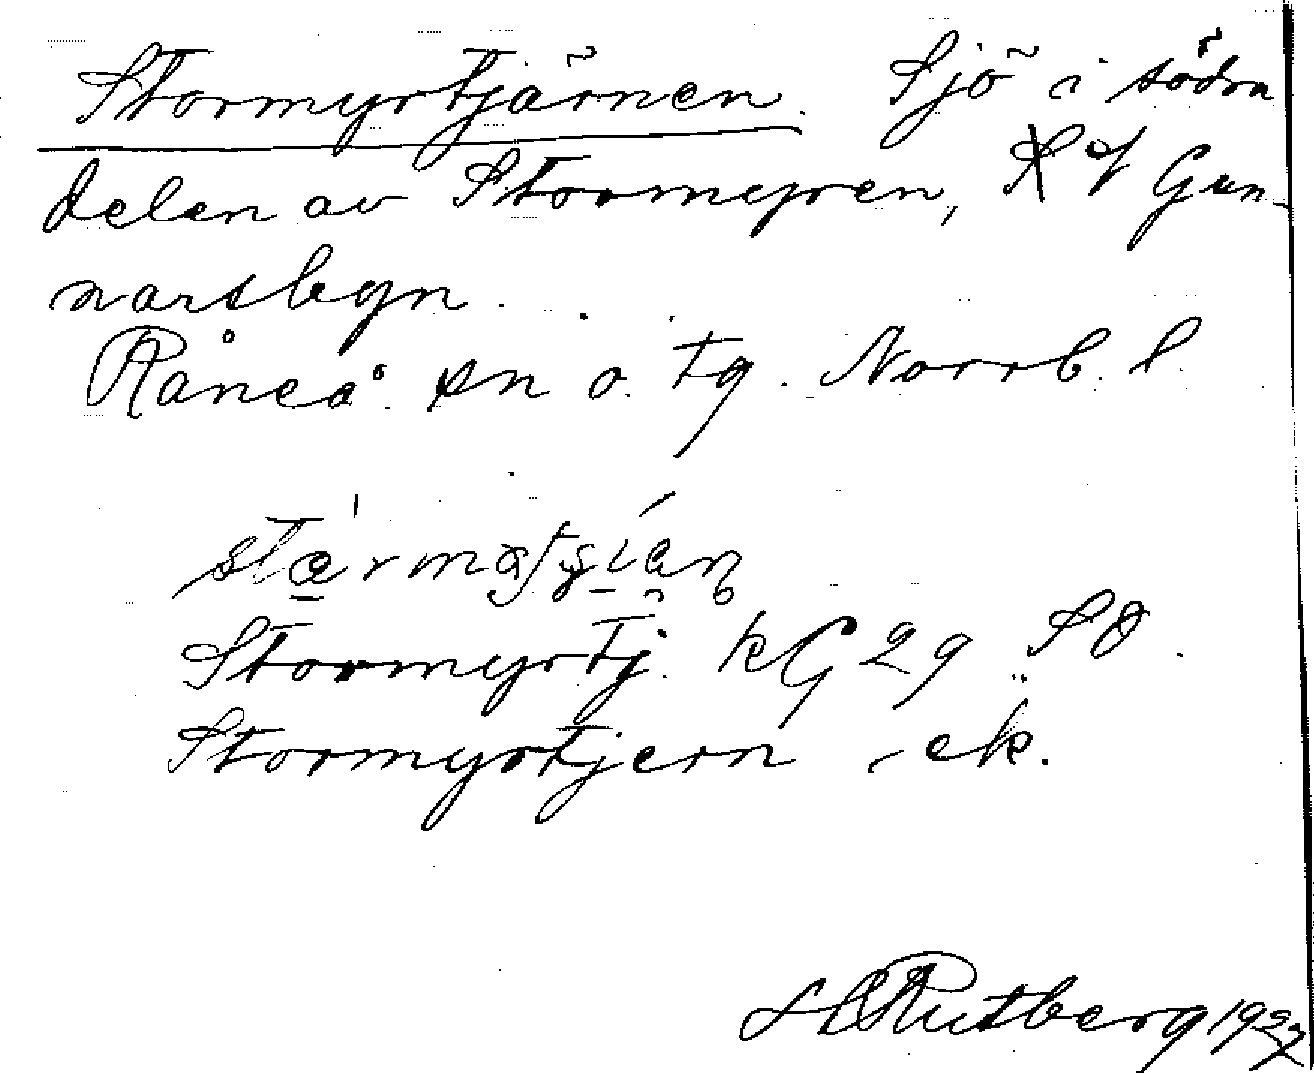 Stormyrtjärnen. Sjö i södra
delen av Stormyren, V Gun-
narsbyn.
Råneå sn o. tg. Norrb. l.
Stormyrtj. kG 29 SO.
Stormyrtjern - ek.
Rutberg 1927